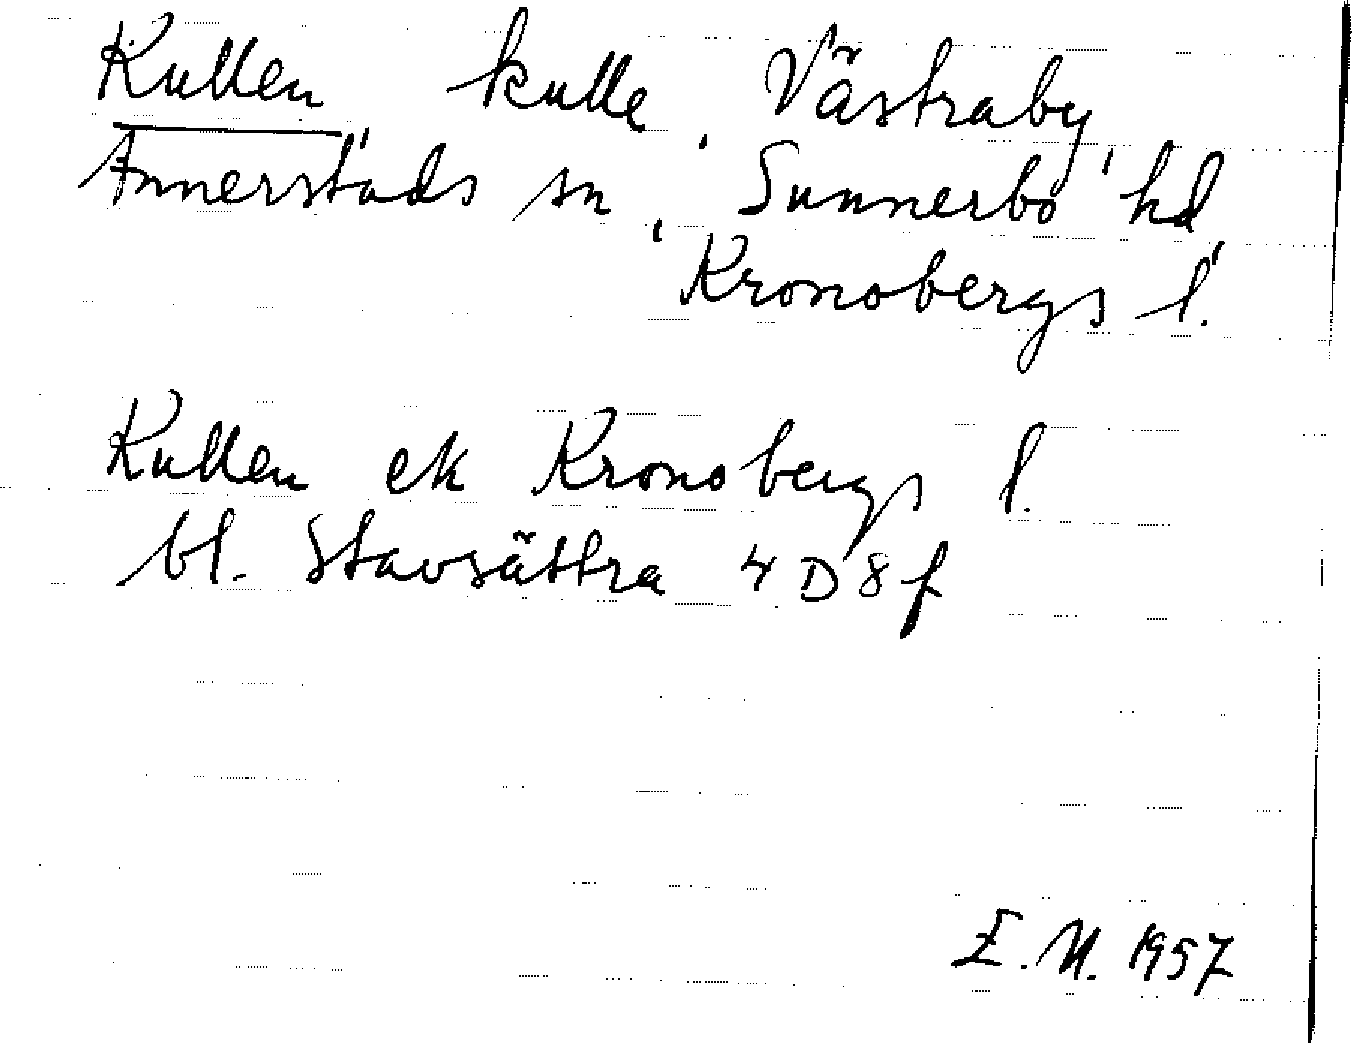 Kullen, kulle, Västraby,
Annerstads sn, Sunnerbo hd,
Kronobergs l.
Kullen ek Kronobergs l.
bl. Stavsättra 4 D 8 f
E. N. 1957